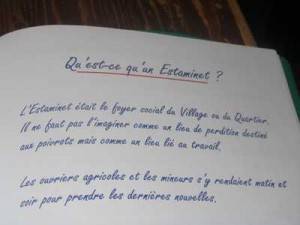 Qu'est-ce qu'un Estaminet ?
L'Estaminet était le foyer social du Village ou du Quartier.
Il ne faut pas l'imaginer comme un lieu de perdition destiné
aux poivrots mais comme un lieu lié au travail.
Les ouvriers agricoles et les mineurs s'y rendaient matin et
soir pour prendre les dernières nouvelles.